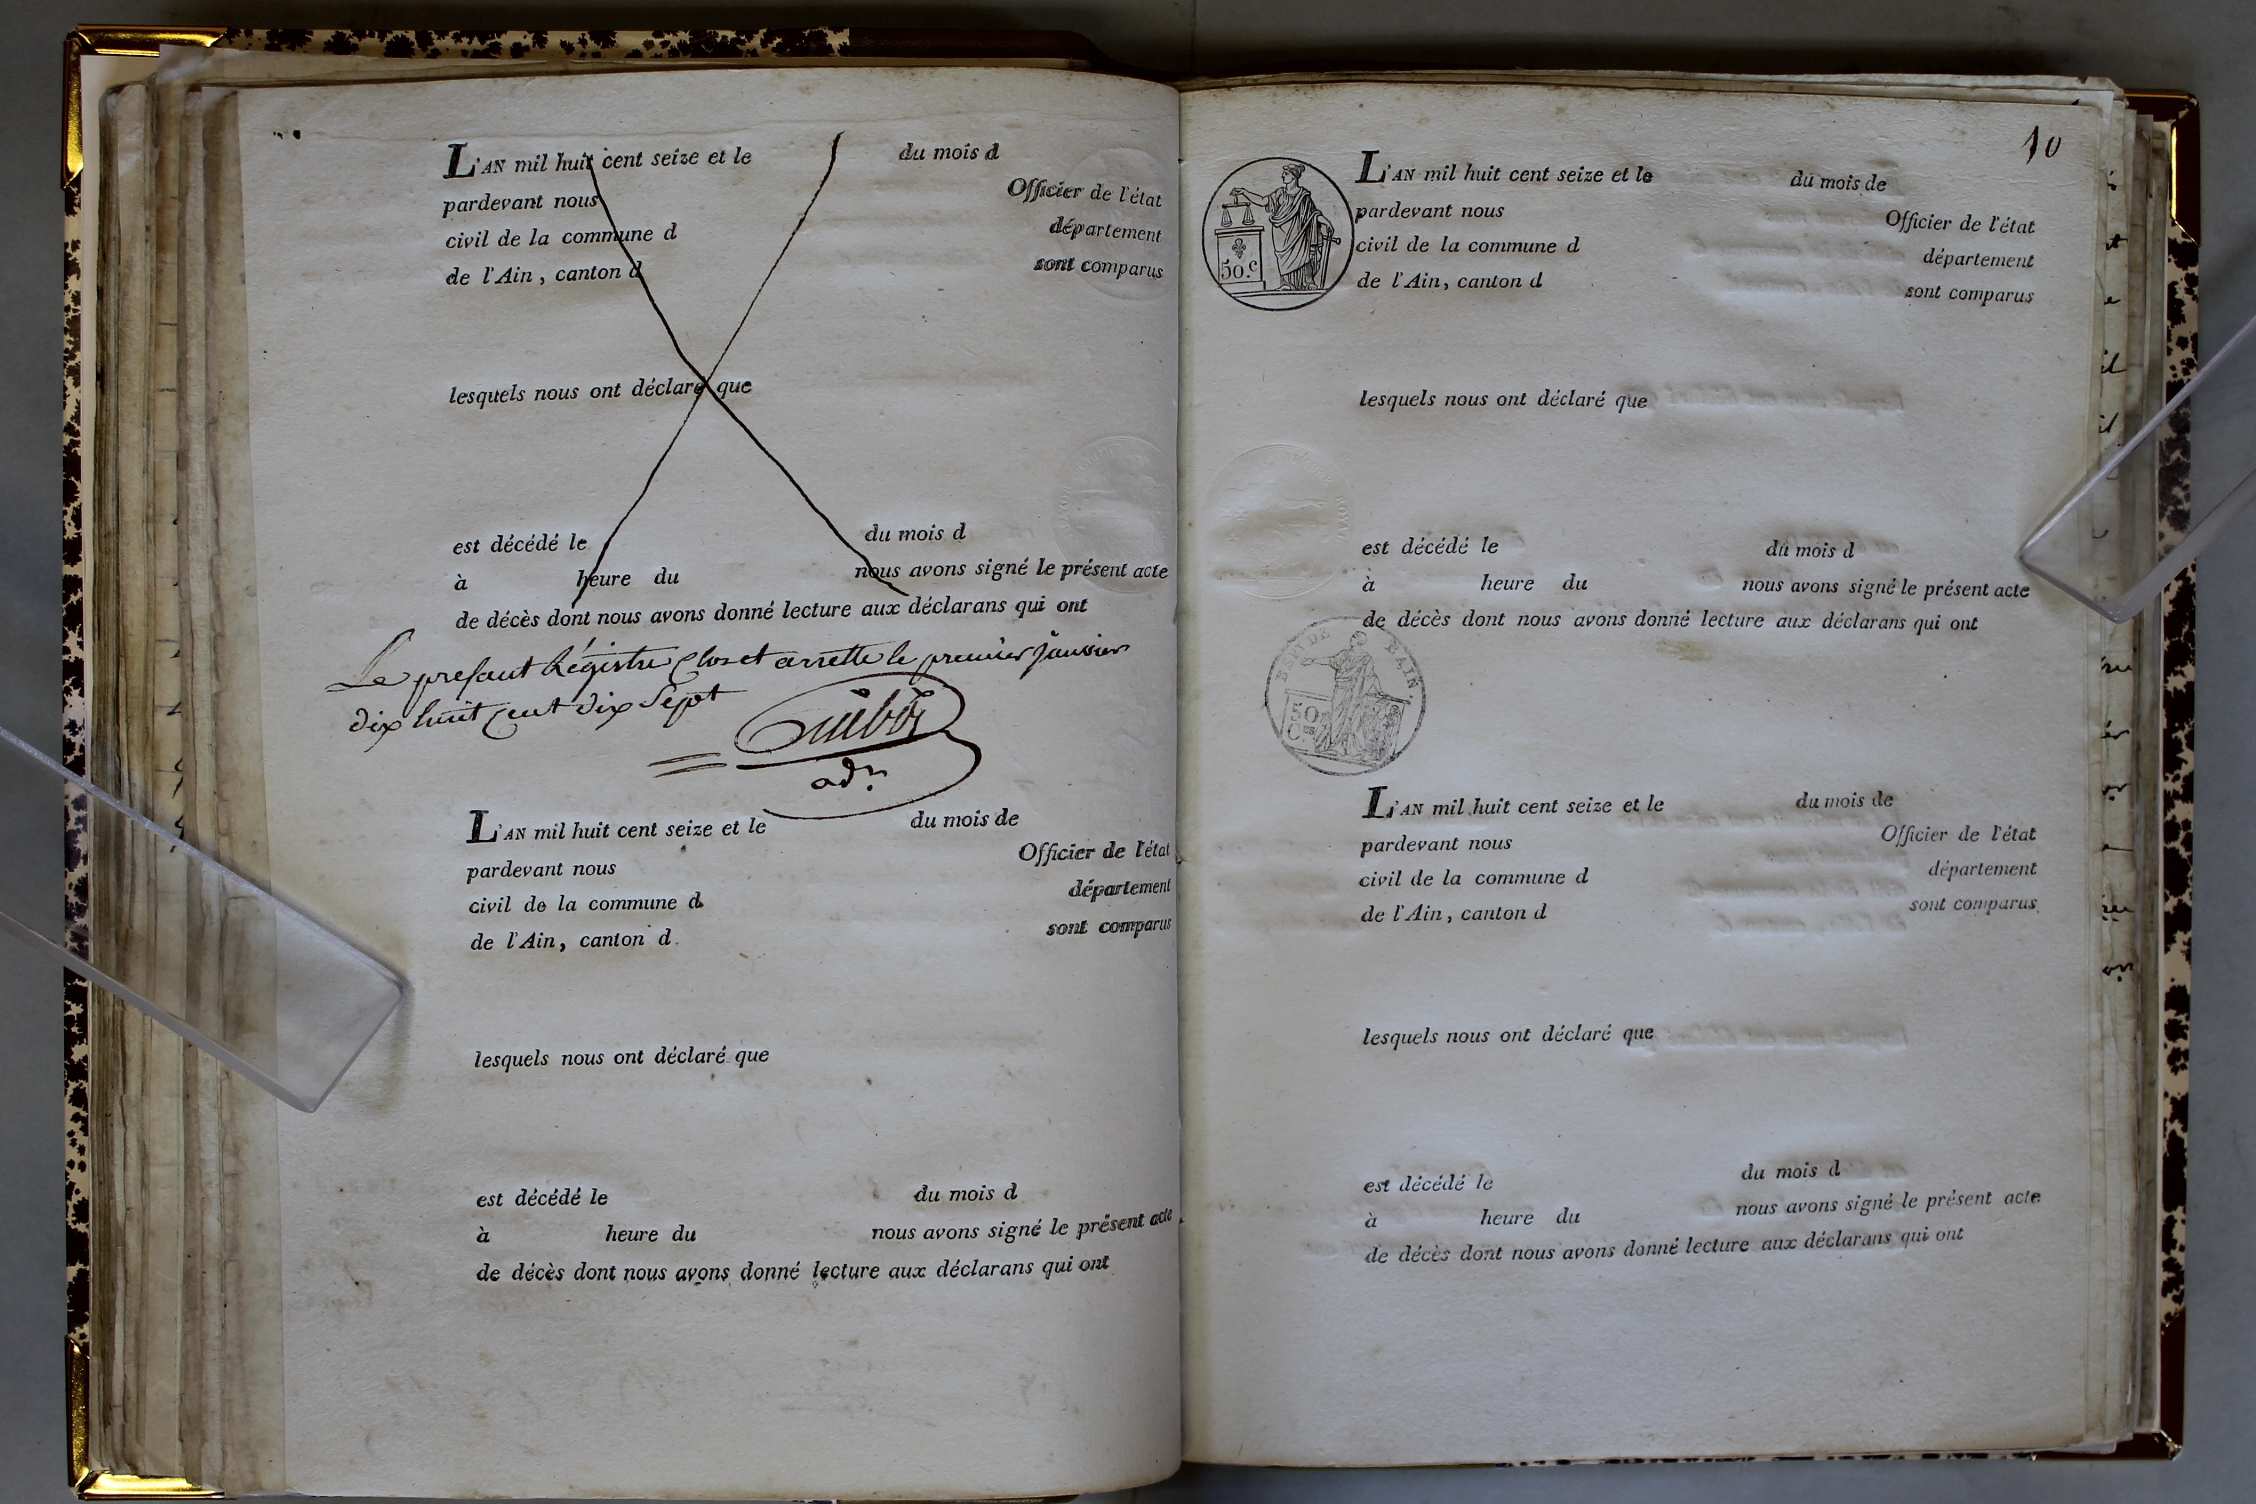 L'AN mil huit cent seize et le du mois d
pardevant nous Officier de l'état
civil de la commune d département
de l'Ain, canton d sont comparus
lesquels nous ont déclaré que
est décédé le du mois d
à heure du nous avons signé le présent acte
de décès dont nous avons donné lecture aux déclarans qui ont
Le present Régistre Clos et arretté le premier janvier
dix huit Cent dix Sept
L'AN mil huit cent seize et le du mois de
pardevant nous Officier de l'état
civil de la commune d département
de l'Ain, canton d sont comparus
lesquels nous ont déclaré que
est décédé le du mois d
à heure du nous avons signé le présent acte
de décès dont nous avons donné lecture aux déclarans qui ont
10
50.c
L'AN mil huit cent seize et le du mois de
pardevant nous Officier de l'état
civil de la commune d département
de l'Ain, canton d sont comparus
lesquels nous ont déclaré que
est décédé le du mois d
à heure du nous avons signé le présent acte
de décès dont nous avons donné lecture aux déclarans qui ont
50
C.es
L'AN mil huit cent seize et le du mois de
pardevant nous Officier de l'état
civil de la commune d département
de l'Ain, canton d sont comparus
lesquels nous ont déclaré que
est décédé le du mois d
à heure du nous avons signé le présent acte
de décès dont nous avons donné lecture aux déclarans qui ont